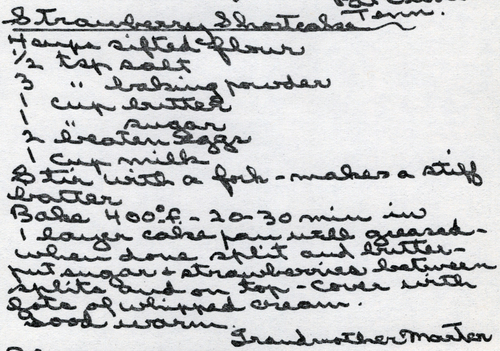 Tenn.
Strawberry Shortcake
4 cups sifted flour
1/2 tsp salt
3 " baking powder
1 cup butter
1 " sugar
2 beaten eggs
1 cup milk
Stir with a fork - makes a stiff
batter
Bake 400°f. - 20-30 min in
1 layer cake pan well greased -
when done split and butter -
put sugar + strawberries between
splits and on top - cover with
lots of whipped cream.
Good warm.
Grandmother Marter